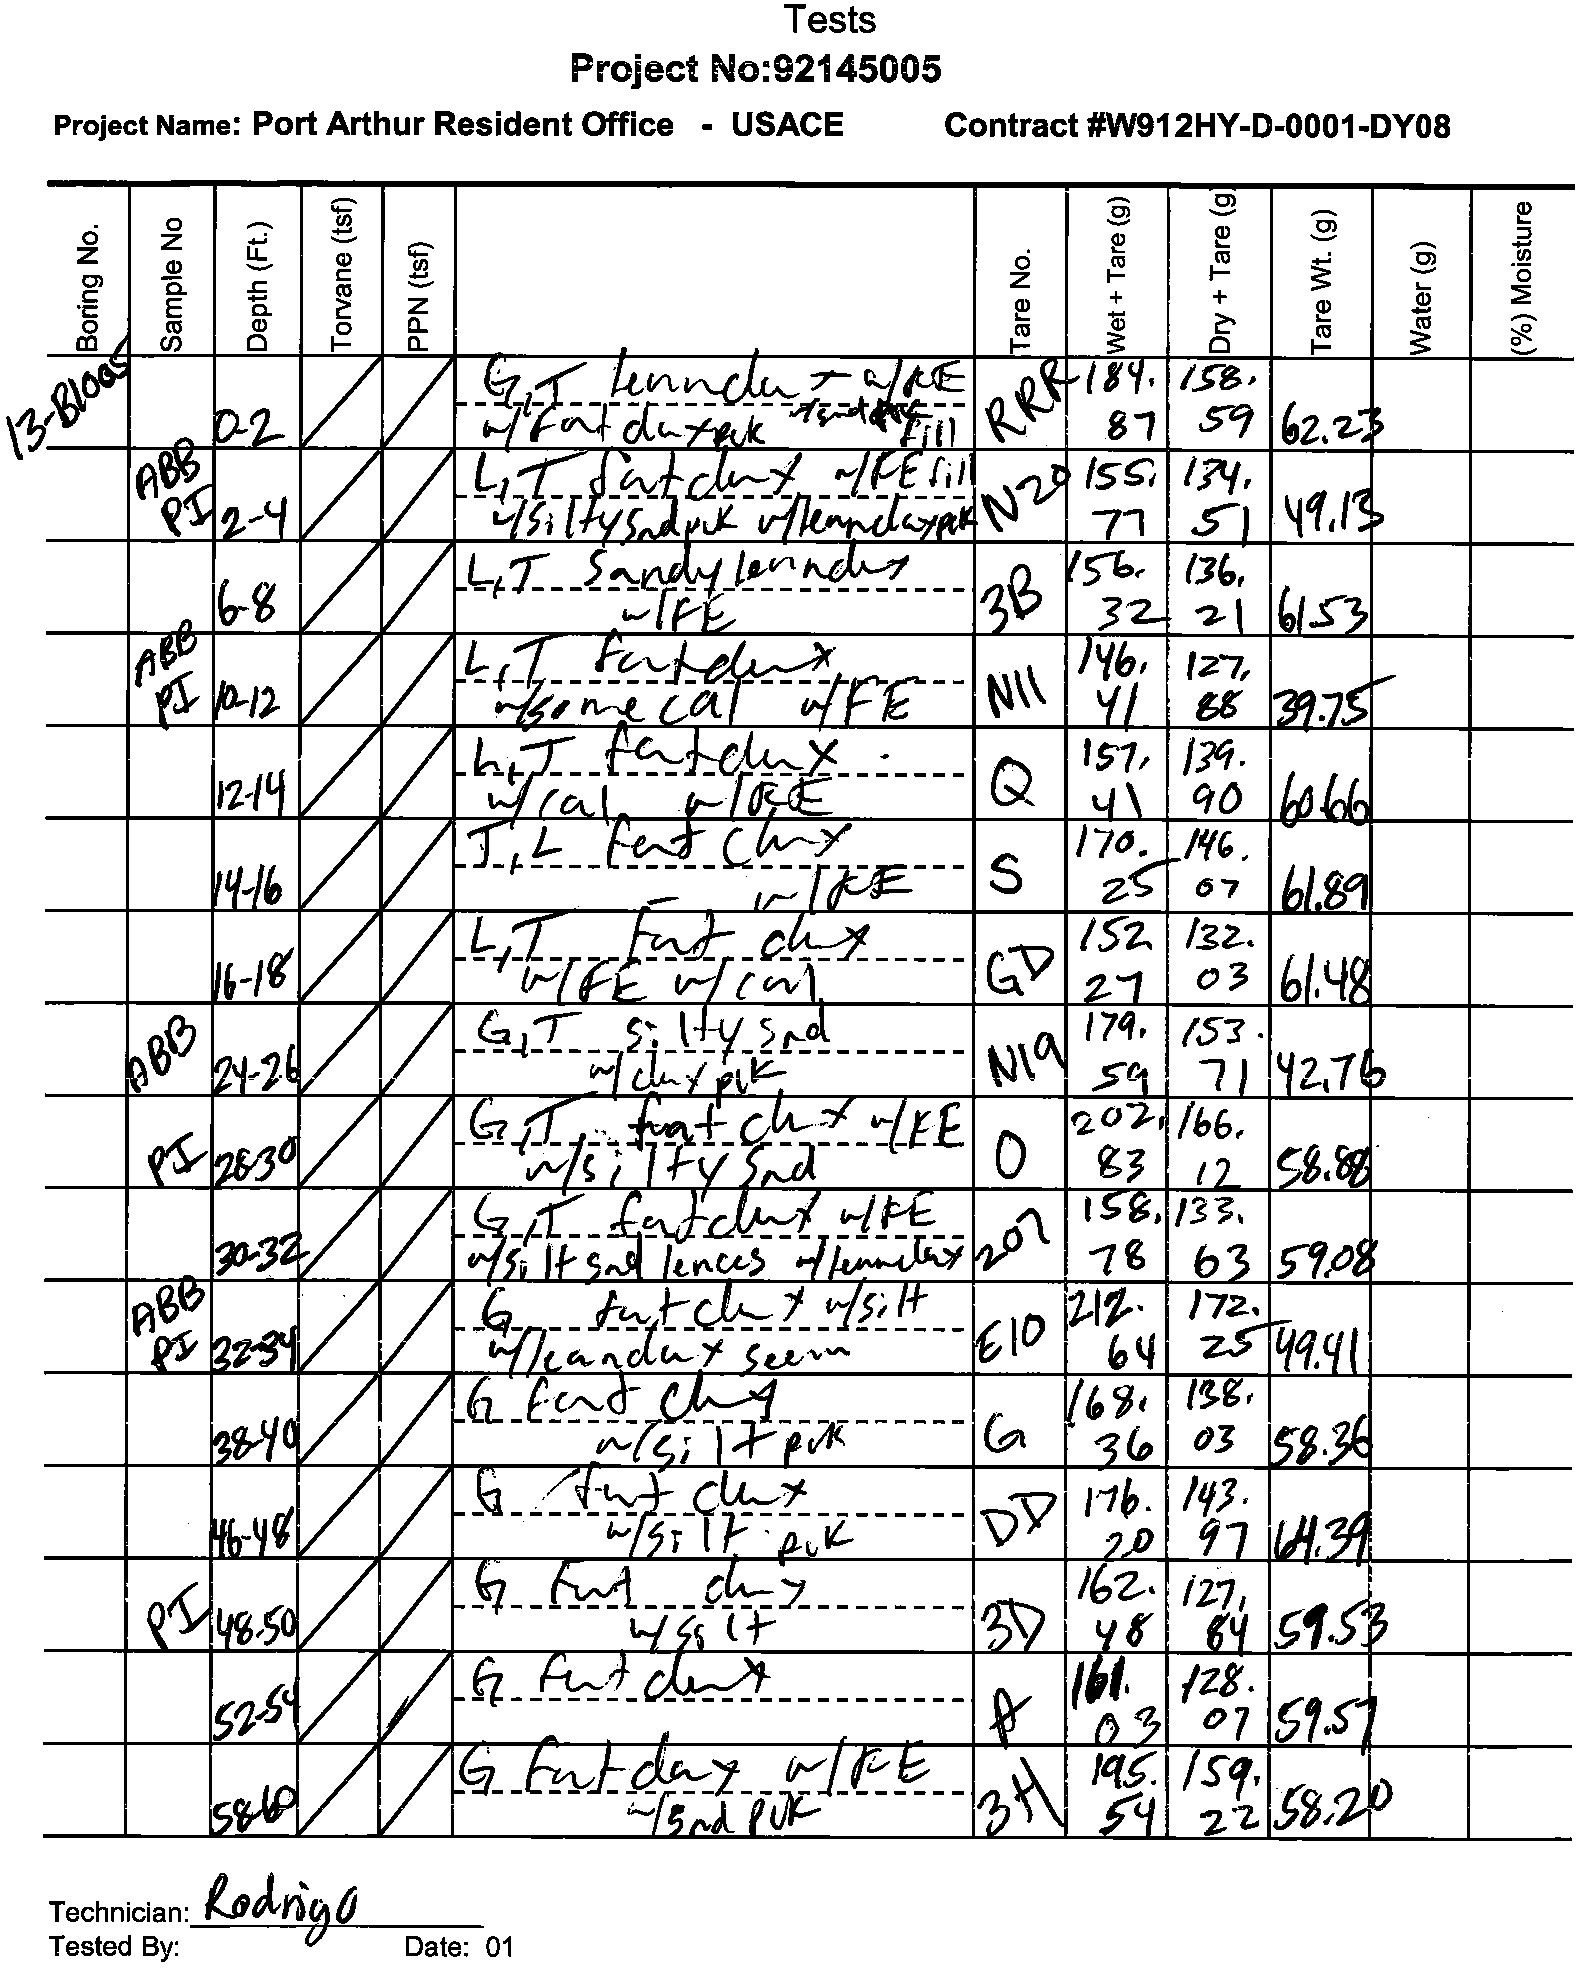 Tests
Project No:92145005
Project Name: Port Arthur Resident Office - USACE Contract #W912HY-D-0001-DY08
Boring No. Sample No Depth (Ft.) Torvane (tsf) PPN (tsf) Tare No. Wet + Tare (g) Dry + Tare (g) Tare Wt. (g) Water (g) (%) Moisture
G,T w/FE RRR 184. 158.
0-2 w/ fat clay pvk fill 87 59 62.23
ABB L,T fat clay w/FE fill N20 155. 134.
PI 2-4 w/silty snd pvk w/lean clay pvk 77 51 49.13
L,T Sandy lean clay 3B 156. 136.
6-8 w/FE 32 21 61.53
ABB L,T fat clay N11 146. 127.
PI 10-12 w/some cal w/FE 41 88 39.75
L,T fat clay Q 157. 139.
12-14 w/cal w/FE 41 90 60.66
T,L fat clay S 170. 146.
14-16 w/FE 25 07 61.89
L,T fat clay GD 152 132.
16-18 w/FE w/cal 27 03 61.48
ABB G,T silty snd N19 179. 153.
24-26 w/clay pvk 59 71 42.76
G,T fat clay w/FE O 202. 166.
PI 28-30 w/silty snd 83 12 58.88
G,T fat clay w/FE 207 158. 133.
30-32 w/silt snd lences w/lean clay 78 63 59.08
ABB G fat clay w/silt E10 212. 172.
PI 32-34 w/lean clay seem 64 25 49.41
G fat clay G 168. 138.
38-40 w/silt pvk 36 03 58.36
G fat clay DD 176. 143.
46-48 w/silt pvk 20 97 64.39
G Fat clay 3D 162. 127.
PI 48-50 w/silt 48 84 59.53
G Fat clay A 161. 128.
52-54 03 07 59.57
G Fat clay w/FE 3H 195. 159.
58-60 w/snd pvk 54 22 58.20
Technician: Rodrigo
Tested By: Date: 01